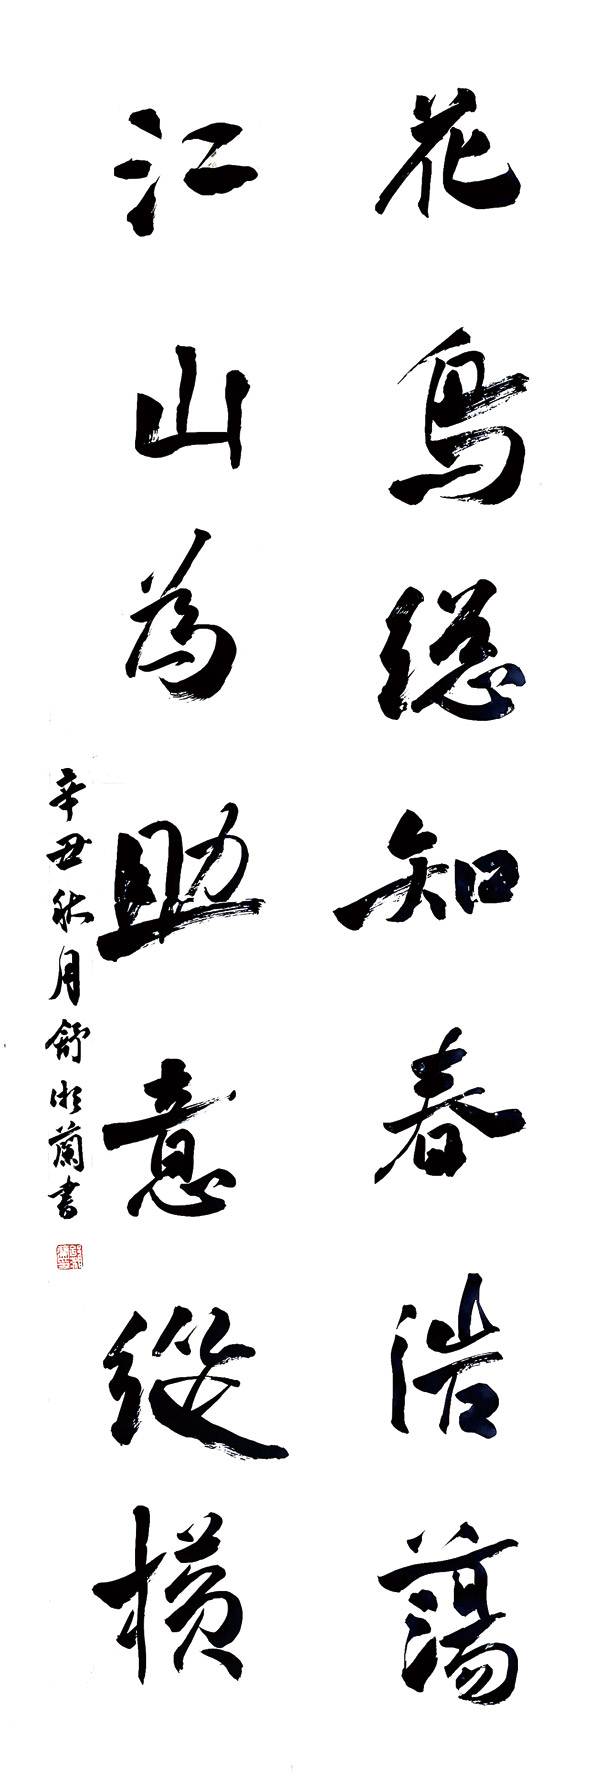 花鳥總知春浩蕩
江山為助意縱橫
辛丑秋月舒湘蘭書